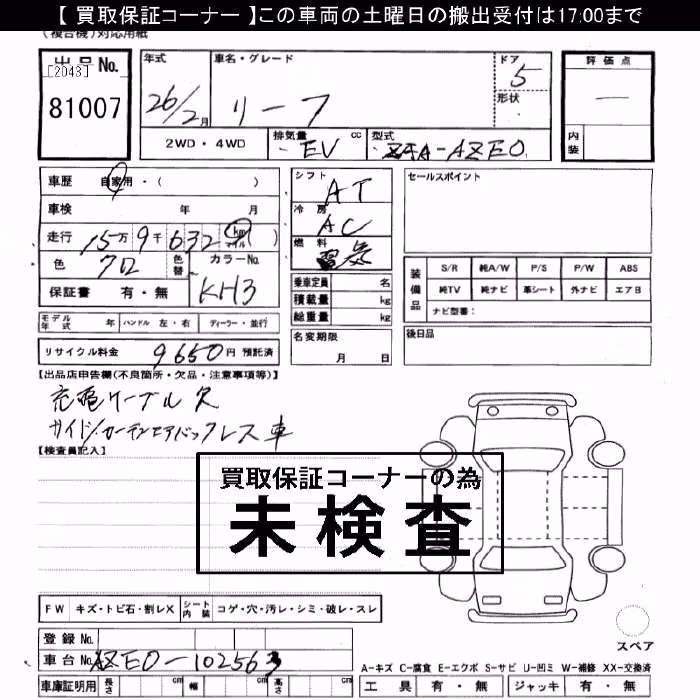 【 買取保証コーナー 】この車両の土曜日の搬出受付は17:00まで
(複合機)対応用紙
出品No.
[2043]
81007
年式
26/2月
車名・グレード
リーフ
ドア
5
形状
評価点
—
内装
2WD・4WD
排気量
EV
cc
型式
ZAA-AZE0
車歴 自家用・( )
車検 年 月
走行 15万9千632 km マイル )
色 クロ
色替
カラーNo.
KH3
保証書 有・無
シフト
AT
冷房
AC
燃料
電気
乗車定員 名
積載量 kg
総重量 kg
セールスポイント
装備品
S/R 純A/W P/S P/W ABS
純TV 純ナビ 革シート 外ナビ エアB
ナビ型番:
モデル年式 年
ハンドル 左・右
ディーラー・並行
リサイクル料金 9650円 預託済
名変期限
月 日
後日品
【出品店申告欄(不良箇所・欠品・注意事項等)】
充電ケーブル欠
サイド/カーテンエアバックレス車
【検査員記入】
買取保証コーナーの為
未検査
FW キズ・トビ石・割レX
シート内装 コゲ・穴・汚レ・シミ・破レ・スレ
登録No.
車台No. AZE0-102563
車庫証明用 長さ cm 幅 cm 高さ cm
スペア
A-キズ C-腐食 E-エクボ S-サビ U-凹ミ W-補修 XX-交換済
工具 有・無 ジャッキ 有・無